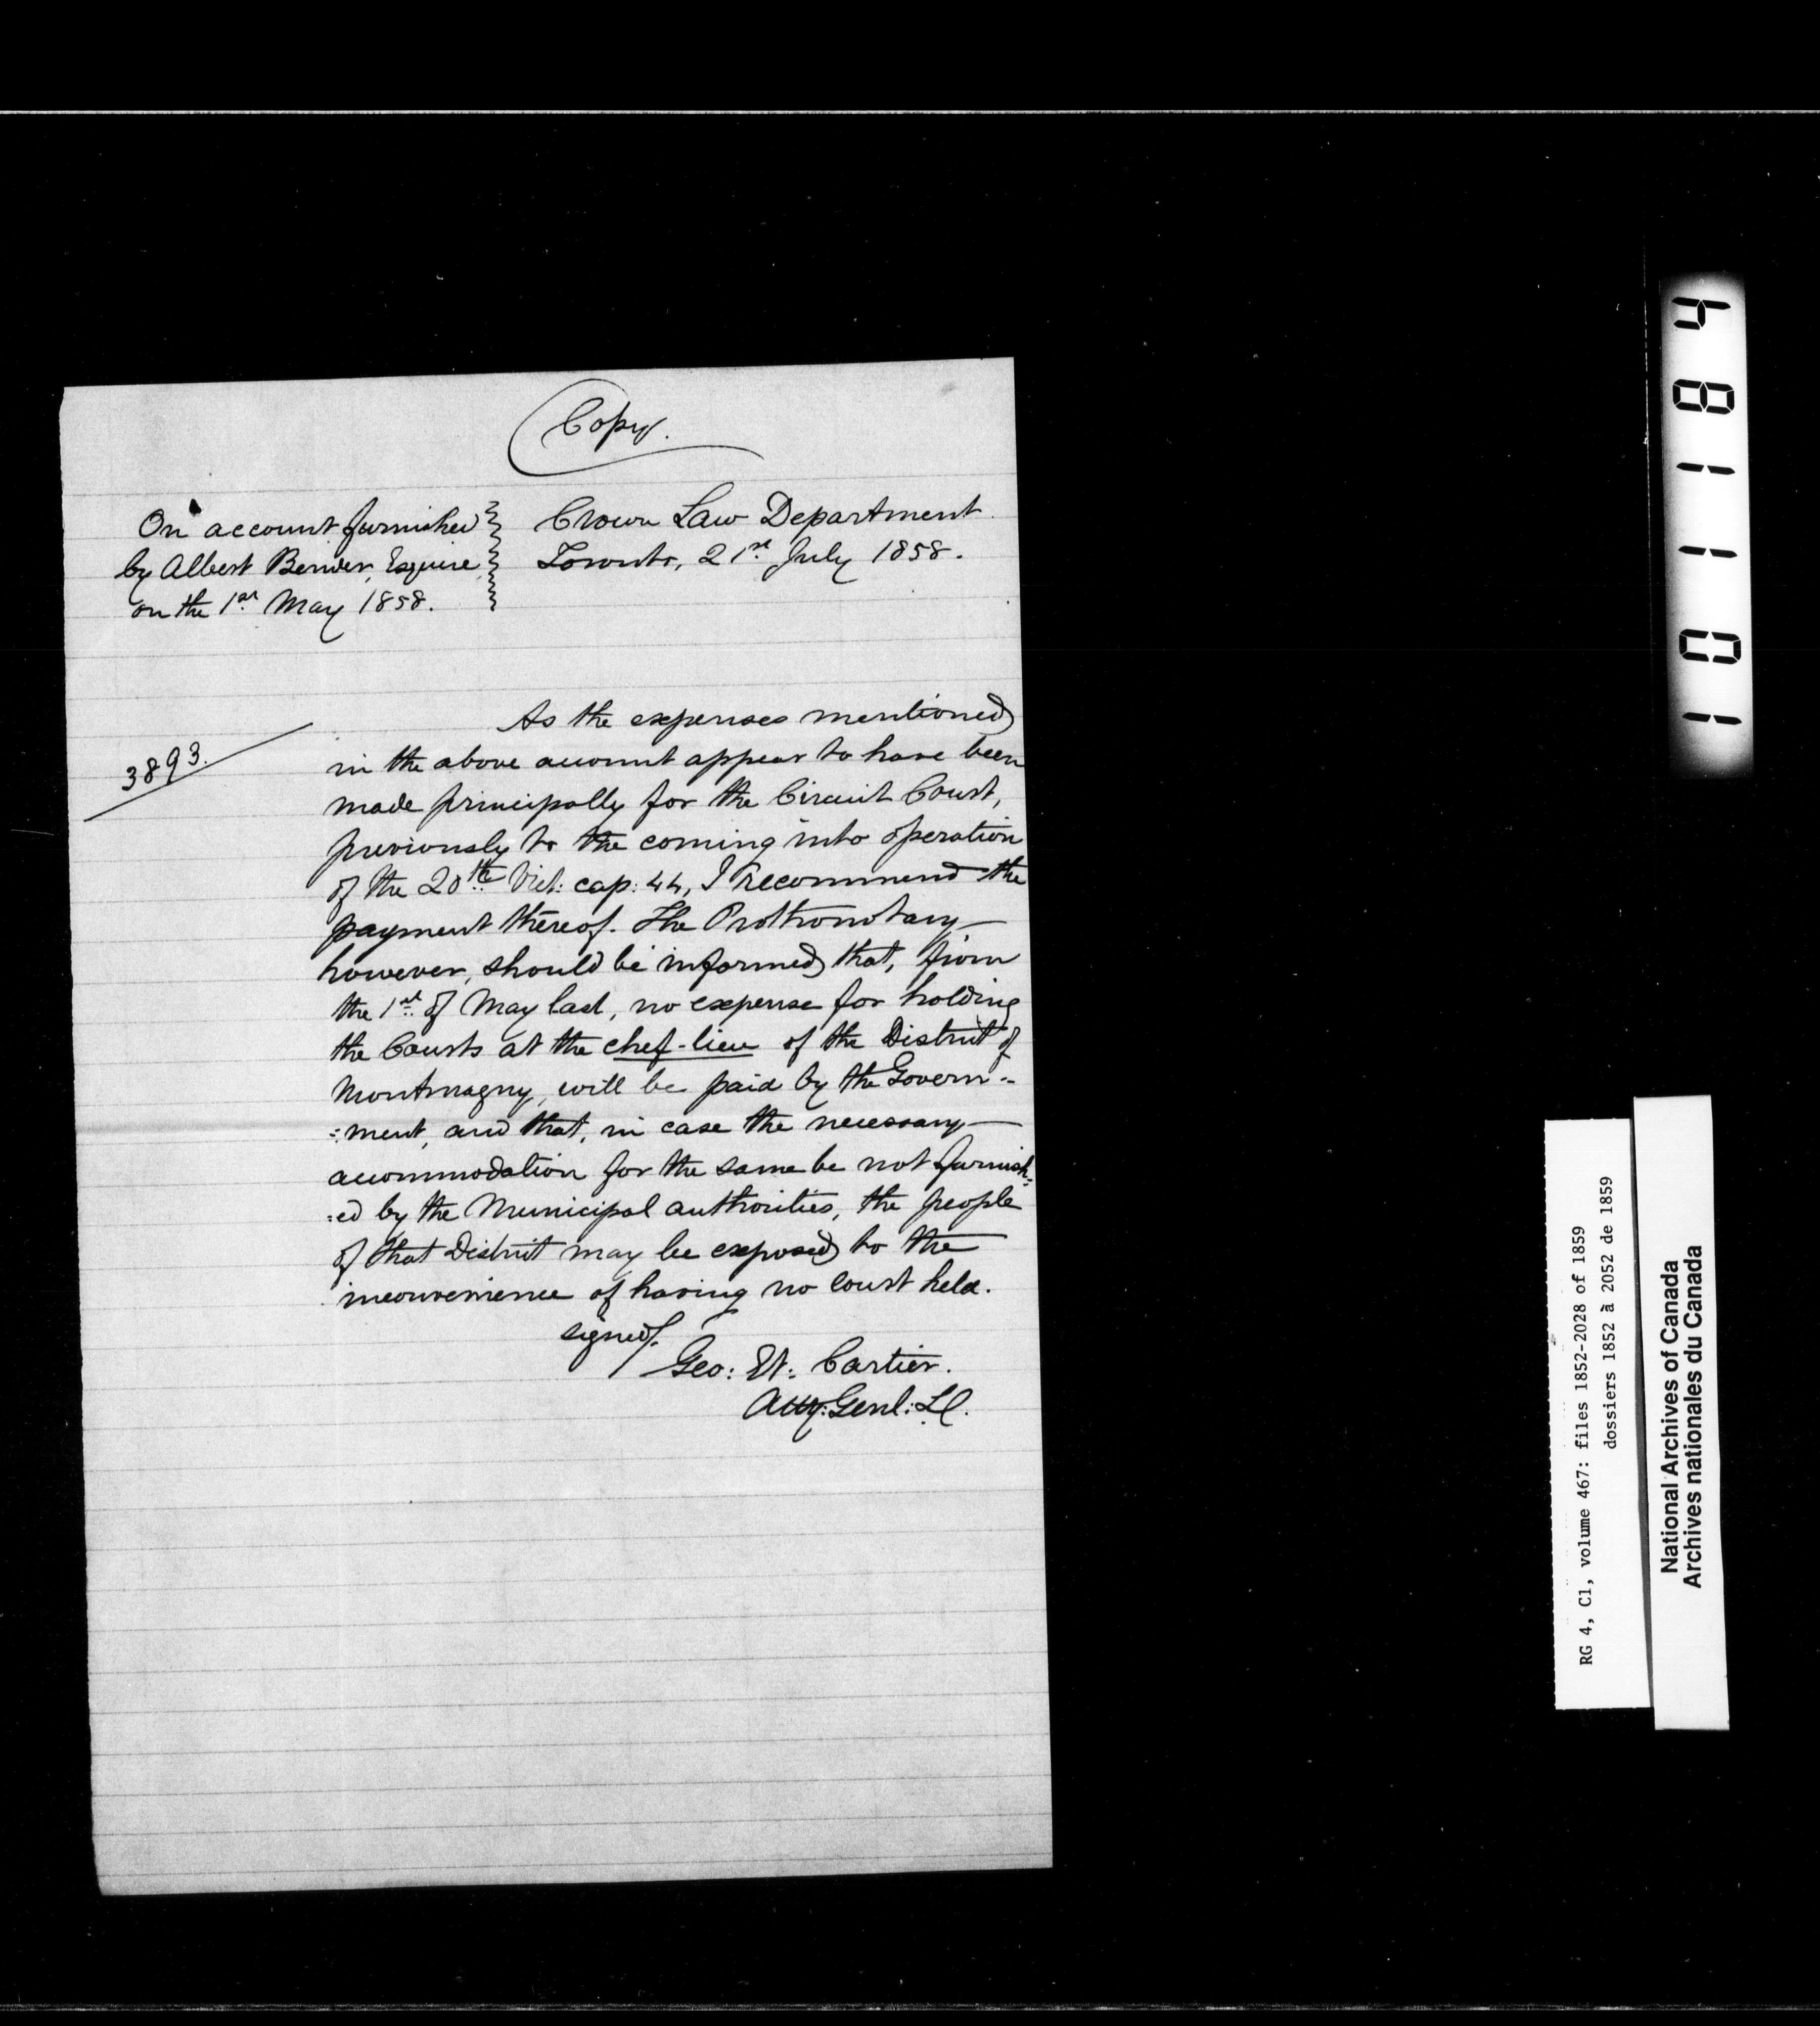 Copy.
On account furnished
by Albert Bender, Esquire
on the 1st May 1858.
Crown Law Department.
Toronto, 21st July 1858.
3893.
As the expenses mentioned
in the above account appear to have been
made principally for the Circuit Court,
previously to the coming into operation
of the 20th Vict: cap: 44, I recommend the
payment thereof. The Prothonotary
however, should be informed that, from
the 1st of May last, no expense for holding
the Courts at the chef-lieu of the District of
Montmagny, will be paid by the Govern-
:ment, and that, in case the necessary
accommodation for the same be not furnish:
:ed by the Municipal authorities, the people
of that District may be exposed to the
inconvenience of having no Court held.
signed.
Geo: Et: Cartier.
Atty: Genl: L.C.
1011184
RG 4, C1, volume 467: files 1852-2028 of 1859
dossiers 1852 à 2052 de 1859
National Archives of Canada
Archives nationales du Canada